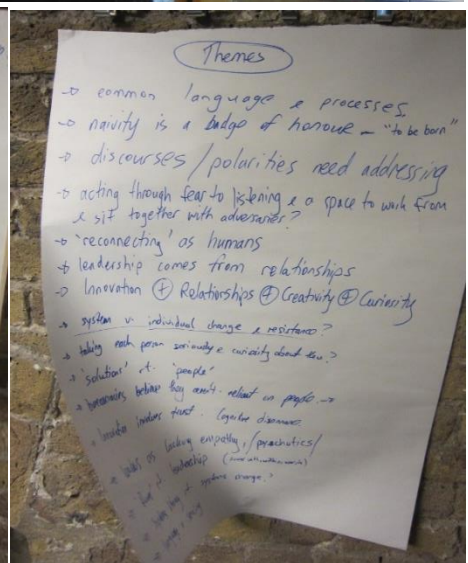 Themes
→ common language & processes
→ naivity is a badge of honour – "to be born"
→ discourses / polarities need addressing
→ acting through fear to listening & a space to work from
& sit together with adversaries?
→ 'reconnecting' as humans
→ leadership comes from relationships
→ Innovation + Relationships + Creativity + Curiosity
→ system v. individual change & resistance?
→ taking each person seriously & curiosity about
→ 'solution' 'people'
believe they aren't reliant on people →
involves trust. Cognitive dissonance
as lacking empathy, /
leadership
change?